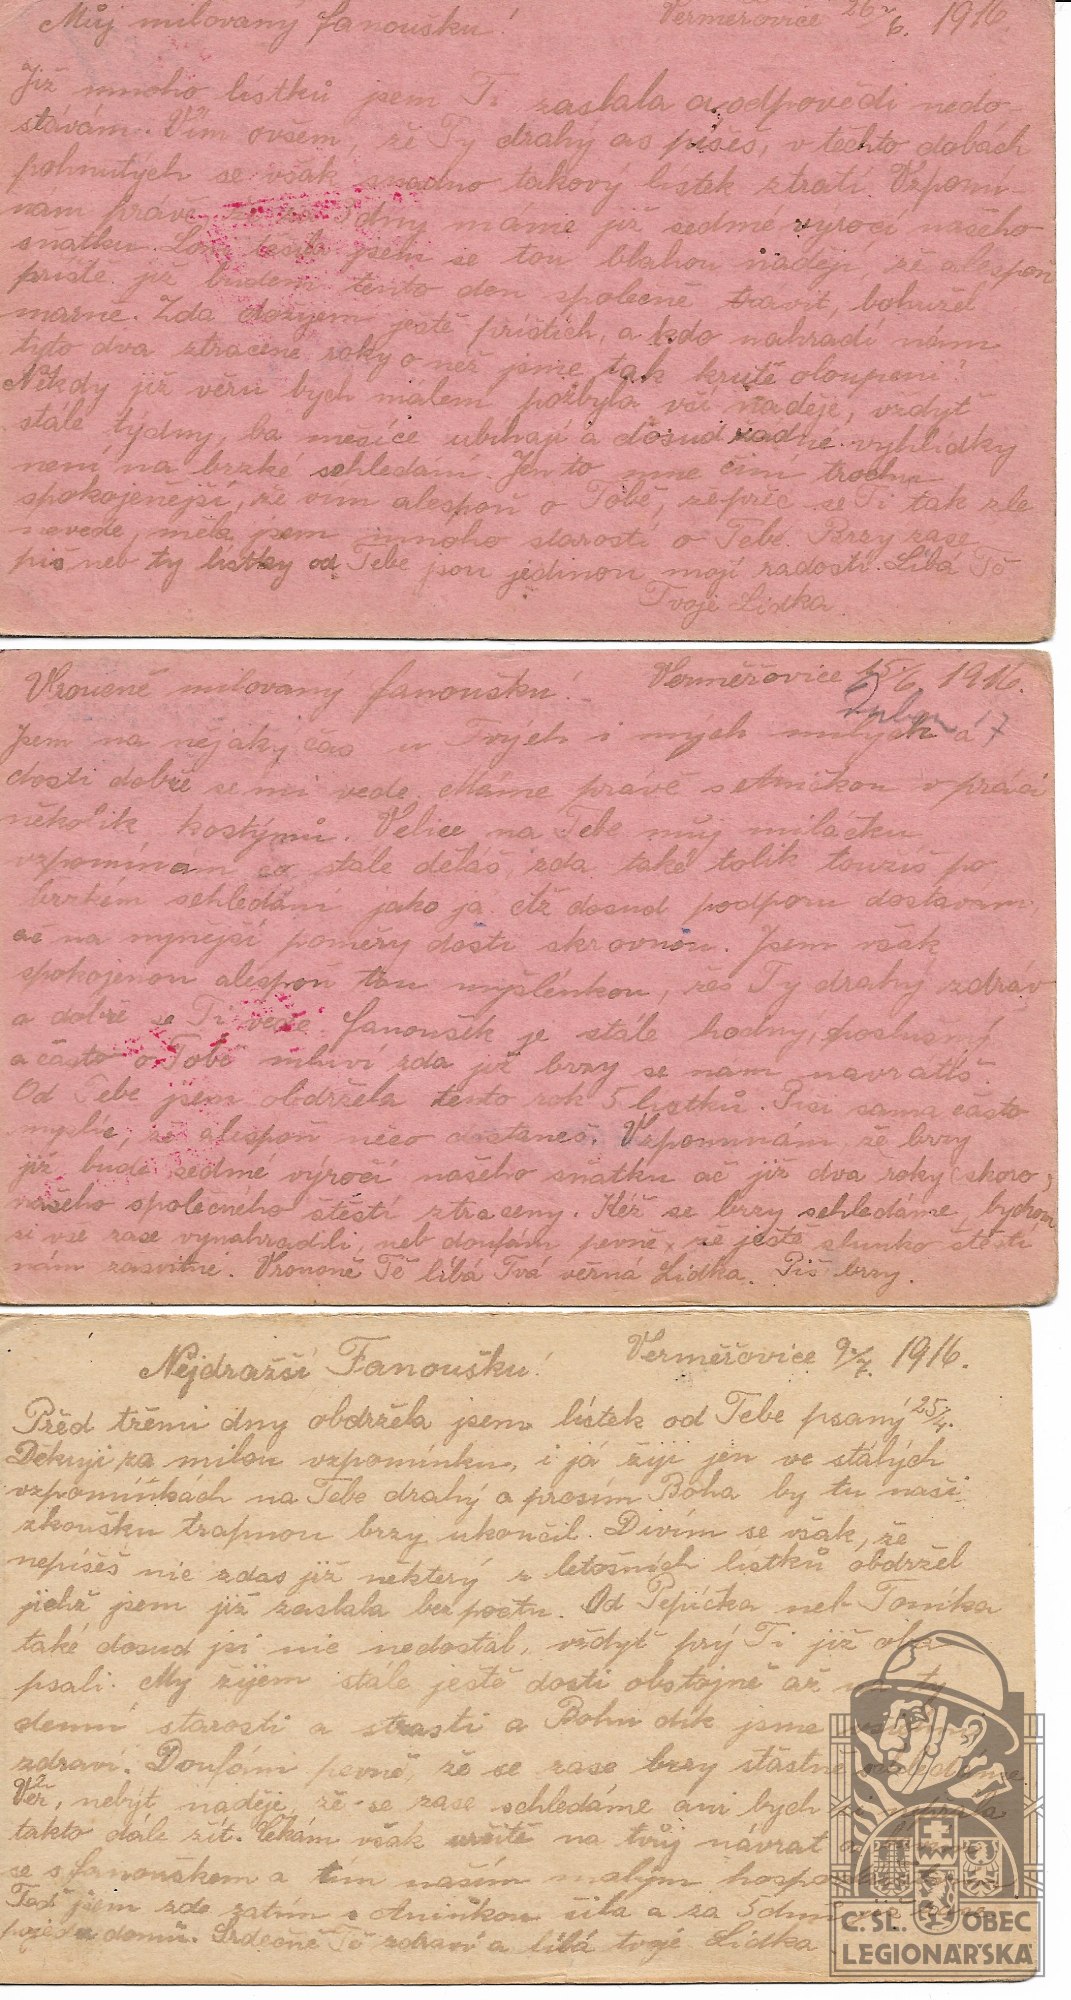 Můj milovaný Fanoušku! Verměřovice 26/6. 1916.
Již mnoho lístků jsem Ti zaslala a odpovědi nedo-
stávám. Vím ovšem, že Ty drahý as píšeš, v těchto dobách
pohnutých se však snadno takový lístek ztratí. Vzpomí-
nám právě, že za dny máme již sedmé výročí našeho
sňatku. Loni těšila jsem se tou blahou nadějí, že alespoň
příště již budem tento den společně trávit, bohužel
marně. Zda dožijem ještě příštích, a kdo nahradí nám
tyto dva ztracené roky o něž jsme tak krutě oloupeni?
Někdy již věru bych málem pozbyla vší naděje, vždyť
stále týdny, ba měsíce ubíhají a dosud žádné vyhlídky
není na brzké sehledání. Jen to mne činí trochu
spokojenější, že vím alespoň o Tobě, že příč se Ti tak zle
nevede, měla jsem mnoho starostí o Tebe. Brzy zase
piš neb ty lístky od Tebe jsou jedinou mojí radostí. Líbá Tě
Tvoje Lidka.
Vroucně milovaný Fanoušku! Verměřovice 15/6 1916.
Jsem na nějaký čas u Tvých i mých milých a
dosti dobře se mi vede. Máme právě s Aničkou v práci
několik kostýmů. Velice na Tebe můj miláčku
vzpomínám co stále děláš, zda také tolik toužíš po
brzkém sehledání jako já. Též dosud podporu dostávám,
ač na nynější poměry dosti skrovnou. Jsem však
spokojenou alespoň tou myšlénkou, žes Ty drahý zdráv
a dobře se Ti vede. Fanoušek je stále hodný, poslušný
a často o Tobě mluví zda již brzy se nám navrátíš.
Od Tebe jsem obdržela tento rok 5 lístků. Píši sama často
myslíc, že alespoň něco dostaneš. Vzpomínám že brzy
již bude sedmé výročí našeho sňatku ač již dva roky (skoro)
našeho společného štěstí ztraceny. Kéž se brzy sehledáme, bychom
si vše zase vynahradili, neb doufám pevně, že ještě slunko štěstí
nám zasvitne. Vroucně Tě líbá Tvá věrná Lidka. Piš brzy.
Nejdražší Fanoušku! Verměřovice 9/7. 1916.
Před třemi dny obdržela jsem lístek od Tebe psaný 25/4.
Děkuji za milou vzpomínku, i já žiji jen ve stálých
vzpomínkách na Tebe drahý a prosím Boha by tu naši
zkoušku trapnou brzy ukončil. Divím se však, že
nepíšeš nic zdas již některý z letošních lístků obdržel
jichž jsem již zaslala bez počtu. Od Pepíčka neb Toníka
také dosud jsi nic nedostal, vždyť prý Ti již oba
psali. My žijem stále ještě dosti obstojně až na ty
denní starosti a strasti a Bohu dík jsme všichni
zdraví. Doufám pevně, že se zase brzy šťastně sehledáme.
Věř, nebýt naděje, že se zase sehledáme ani bych si nepřála
takto dále žít. Čekám však určitě na tvůj návrat a
se s Fanouškem a tím naším malým
Teď jsem zde zatím s Aničkou šila a za 5 dní
pojedu domů. Srdečně Tě zdraví a líbá tvoje Lidka
Č. SL. OBEC
LEGIONÁŘSKÁ